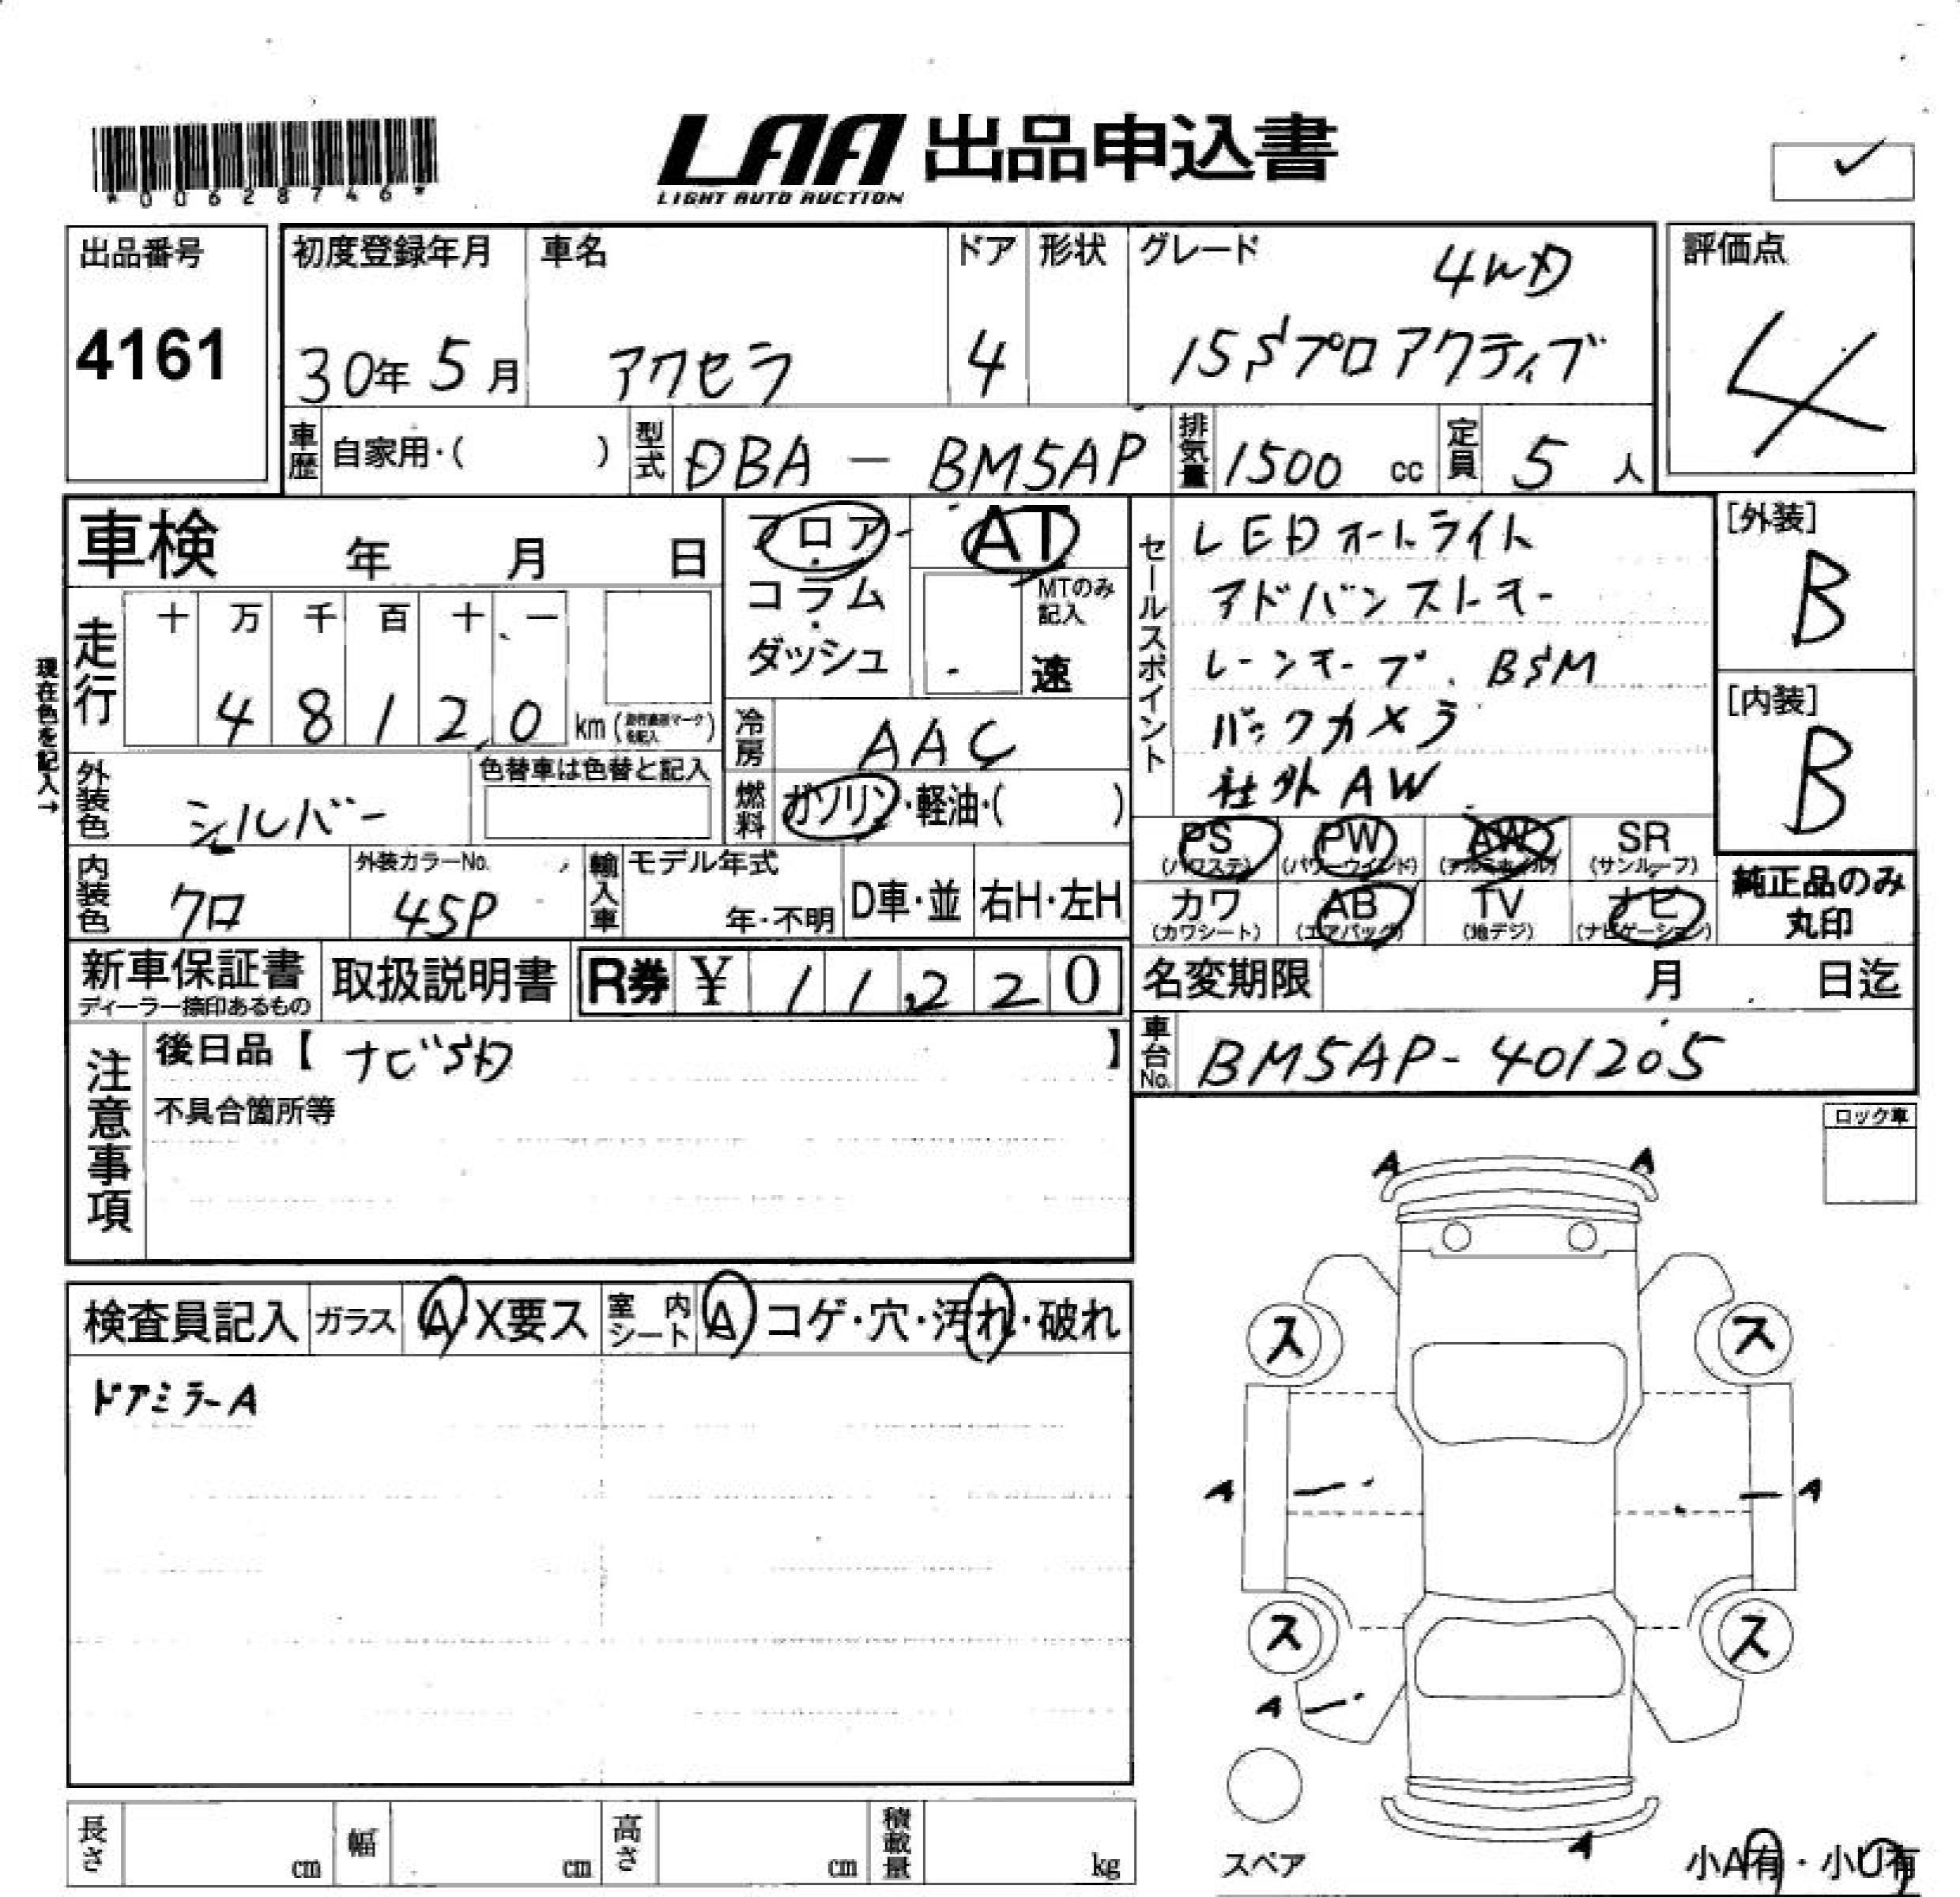 *00628746*
LAA 出品申込書
LIGHT AUTO AUCTION
出品番号
4161
初度登録年月
30年 5月
車名
アクセラ
ドア
4
形状
グレード
4WD
15Sプロアクティブ
評価点
4
車歴 自家用・( )
型式 DBA - BM5AP
排気量 1500 cc
定員 5 人
車検 年 月 日
フロア・
コラム・
ダッシュ
AT
MTのみ記入
速
現在色を記入→
走行
十 万 千 百 十 一
4 8 1 2 0 km
冷房 AAC
燃料 ガソリン・軽油・( )
外装色 シルバー
色替車は色替と記入
内装色 クロ
外装カラーNo.
45P
輸入車
モデル年式
年・不明
D車・並
右H・左H
セールスポイント
LEDオートライト
アドバンストキー
レーンキープ、BSM
バックカメラ
社外AW
[外装]
B
[内装]
B
PS (パワステ)
PW (パワーウインド)
AW (アルミホイル)
SR (サンルーフ)
カワ (カワシート)
AB (エアバッグ)
TV (地デジ)
ナビ (ナビゲーション)
純正品のみ
丸印
新車保証書
ディーラー捺印あるもの
取扱説明書
R券 ¥ 11,220
名変期限 月 日迄
車台No. BM5AP-401205
注意事項
後日品【 ナビSD 】
不具合箇所等
ロック車
検査員記入
ガラス A・X要ス
室内シート A コゲ・穴・汚れ・破れ
ドアミラーA
A A
ス ス
A A
ス ス
A
A
スペア
小A有・小U有
長さ cm
幅 cm
高さ cm
積載量 kg